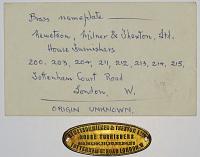 Brass nameplate —
Hewetson, Milner & Thexton, Ltd.
House Furnishers
200, 203, 204, 211, 212, 213, 214, 215,
Tottenham Court Road
London, W.
ORIGIN UNKNOWN.
HEWETSON, MILNER & THEXTON LTD
HOUSE FURNISHERS
TOTTENHAM COURT ROAD LONDON